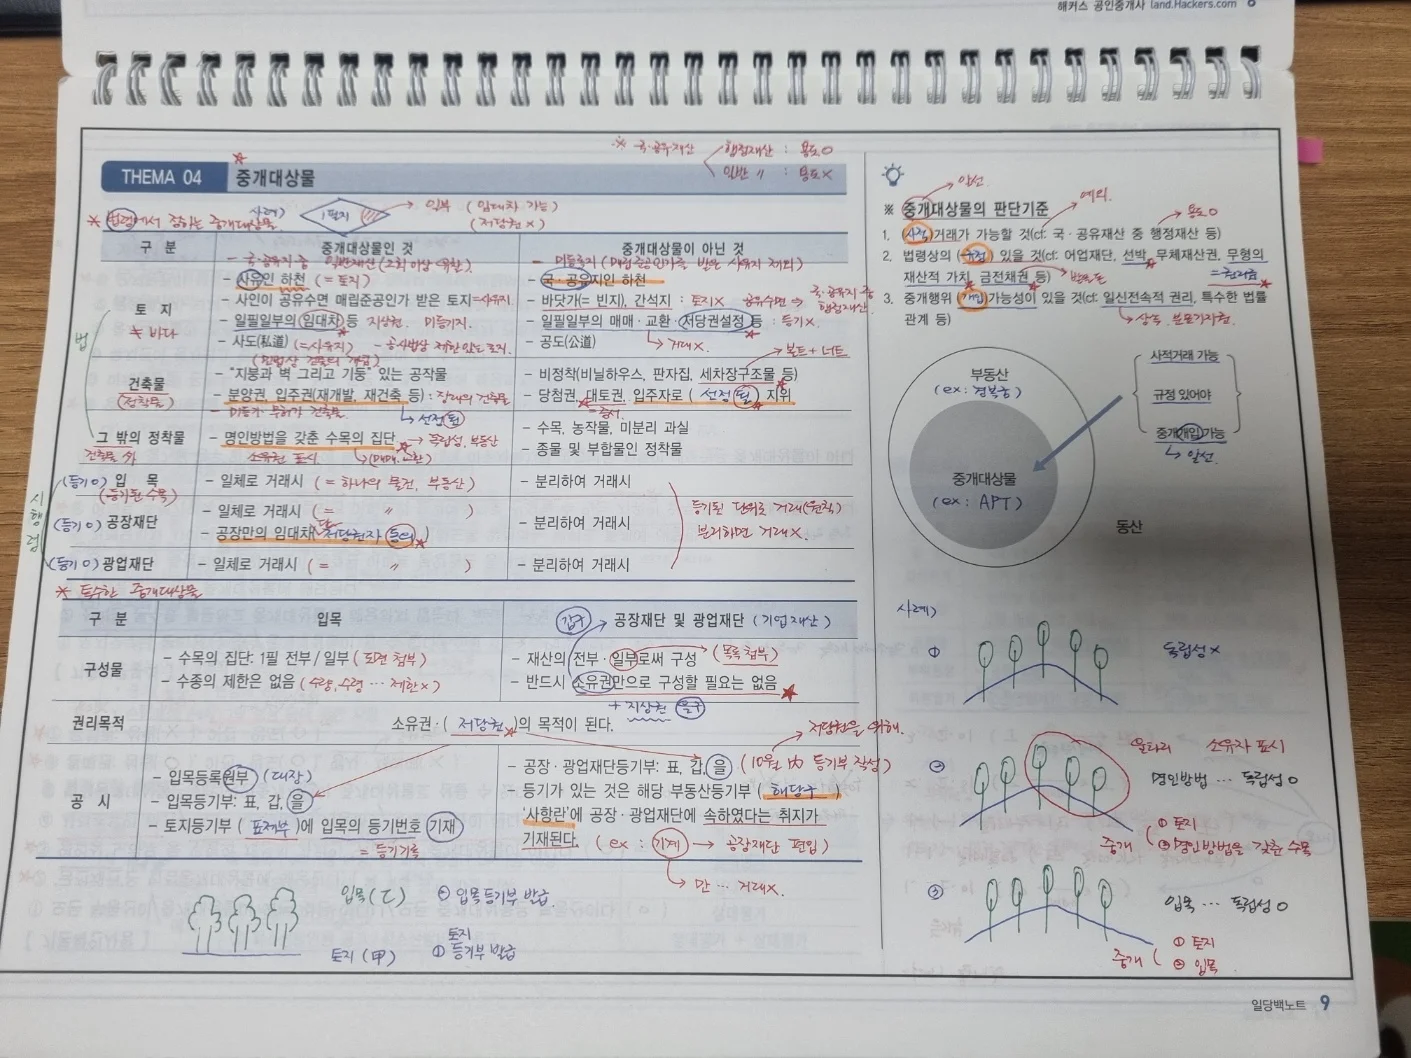 해커스 공인중개사 land.Hackers.com 8
※ 국·공유재산 행정재산 : 용도○
일반 〃 : 용도×
THEMA 04 중개대상물
* 법령에서 정하는 중개대상물
사례) 1필지 → 일부 (임대차 가능)
(저당권×)
구 분 중개대상물인 것 중개대상물이 아닌 것
법
토 지
≠ 바다
- 사유인 하천 (= 토지)
- 사인이 공유수면 매립준공인가 받은 토지=사유지
- 일필일부의 임대차 등 지상권.
- 사도(私道) (=사유지)
- 국·공유지인 하천
- 바닷가(= 빈지), 간석지 : 토지×
- 일필일부의 매매·교환·저당권설정 등 : 등기×
- 공도(公道) → 거래×.
건축물
(정착물)
- "지붕과 벽 그리고 기둥" 있는 공작물
- 분양권, 입주권(재개발, 재건축 등) : 장래의 건축물
- 미등기·무허가 건축물
→ 선정된
볼트 + 너트
- 비정착(비닐하우스, 판자집, 세차장구조물 등)
- 당첨권, 대토권, 입주자로 ( 선정될 ) 지위
그 밖의 정착물
건축물 외
- 명인방법을 갖춘 수목의 집단 → 독립성. 부동산
소유권 표시.
- 수목, 농작물, 미분리 과실
- 종물 및 부합물인 정착물
시행령
(등기○) 입 목
(등기된 수목)
- 일체로 거래시 (= 하나의 물건, 부동산)
- 분리하여 거래시
(등기○) 공장재단
- 일체로 거래시 (= 〃 )
- 공장만의 임대차 저당권자 동의
- 분리하여 거래시
등기된 단위로 거래(원칙)
분리하면 거래×.
(등기○) 광업재단
- 일체로 거래시 (= 〃 )
- 분리하여 거래시
* 특수한 중개대상물
구 분 입목 갑구 공장재단 및 광업재단 (기업재산)
구성물
- 수목의 집단: 1필 전부/일부 (도면 첨부)
- 수종의 제한은 없음 (수량, 수령 … 제한×)
- 재산의 전부·일부로써 구성 → (목록 첨부)
- 반드시 소유권만으로 구성할 필요는 없음
+ 지상권 을구
권리목적 소유권·( 저당권 )의 목적이 된다.
저당권을 위해.
공 시
- 입목등록원부 (대장)
- 입목등기부: 표, 갑, 을
- 토지등기부 ( 표제부 )에 입목의 등기번호 기재
= 등기기록
- 공장·광업재단등기부: 표, 갑, 을 (10월 內 등기부 작성)
- 등기가 있는 것은 해당 부동산등기부 ( 해당구 )
'사항란'에 공장·광업재단에 속하였다는 취지가
기재된다. (ex : 기계 → 공장재단 편입)
→ 만 … 거래×.
입목(乙) ② 입목등기부 발급.
토지(甲) ① 토지등기부 발급
→ 알선.
※ 중개대상물의 판단기준 예외.
용도○
1. 사적 거래가 가능할 것(cf: 국·공유재산 중 행정재산 등)
2. 법령상의 ( 규정 ) 있을 것(cf: 어업재단, 선박, 무체재산권, 무형의
재산적 가치, 금전채권 등) = 권리금
3. 중개행위 개입 가능성이 있을 것(cf: 일신전속적 권리, 특수한 법률
관계 등) → 상속. 분묘기지권.
부동산
(ex : 경복궁)
중개대상물
(ex : APT)
동산
사적거래 가능
규정 있어야
중개개입 가능
→ 알선.
사례)
① 독립성×
② 울타리 소유자 표시
명인방법 … 독립성○
중개 ( ① 토지
② 명인방법을 갖춘 수목
③ 입목 … 독립성○
중개 ( ① 토지
② 입목
일당백노트 9